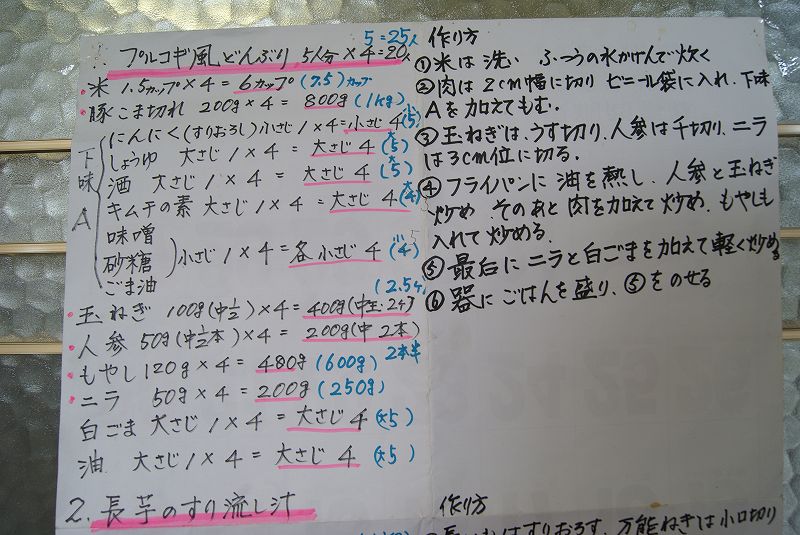 5=25人
プルコギ風どんぶり 5人分×4=20人
・米 1.5カップ×4=6カップ(7.5)カップ
・豚こま切れ 200g×4=800g(1kg)
下味A
にんにく(すりおろし)小さじ1×4=小さじ4(小5)
しょうゆ 大さじ1×4=大さじ4(大5)
酒 大さじ1×4=大さじ4(大5)
キムチの素 大さじ1×4=大さじ4(大4)
味噌
砂糖
ごま油
小さじ1×4=各小さじ4
(2.5ケ)
・玉ねぎ 100g(中1/2)×4=400g(中玉・2ケ)
・人参 50g(中1/2本)×4=200g(中2本)
2本半
・もやし120g×4=480g(600g)
・ニラ 50g×4=200g(250g)
白ごま 大さじ1×4=大さじ4(大5)
油 大さじ1×4=大さじ4(大5)
2.長芋のすり流し汁
作り方
①米は洗い ふつうの水かげんで炊く
②肉は2cm幅に切りビニール袋に入れ、下味
Aを加えてもむ.
③玉ねぎは、うす切り、人参は千切り、ニラ
は3cm位に切る.
④フライパンに油を熱し、人参と玉ねぎ
炒め そのあと肉を加えて炒め、もやしも
入れて炒める.
⑤最后にニラと白ごまを加えて軽く炒める
⑥器にごはんを盛り、⑤をのせる
作り方
はすりおろす、万能ねぎは小口切り